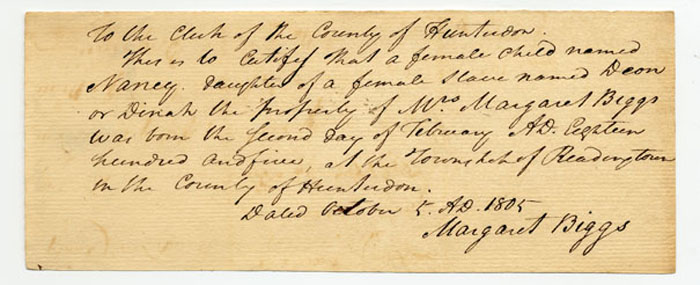 To the Clerk of the County of Hunterdon.
This is to Certify that a female Child named
Nancy. daughter of a female Slave named Deon
or Dinah the Property of Mrs Margaret Biggs
was born the Second Day of February AD. Eighteen
hundred and five, at the Township of Readingtown
in the County of Hunterdon.
Dated October 5. AD. 1805
Margaret Biggs